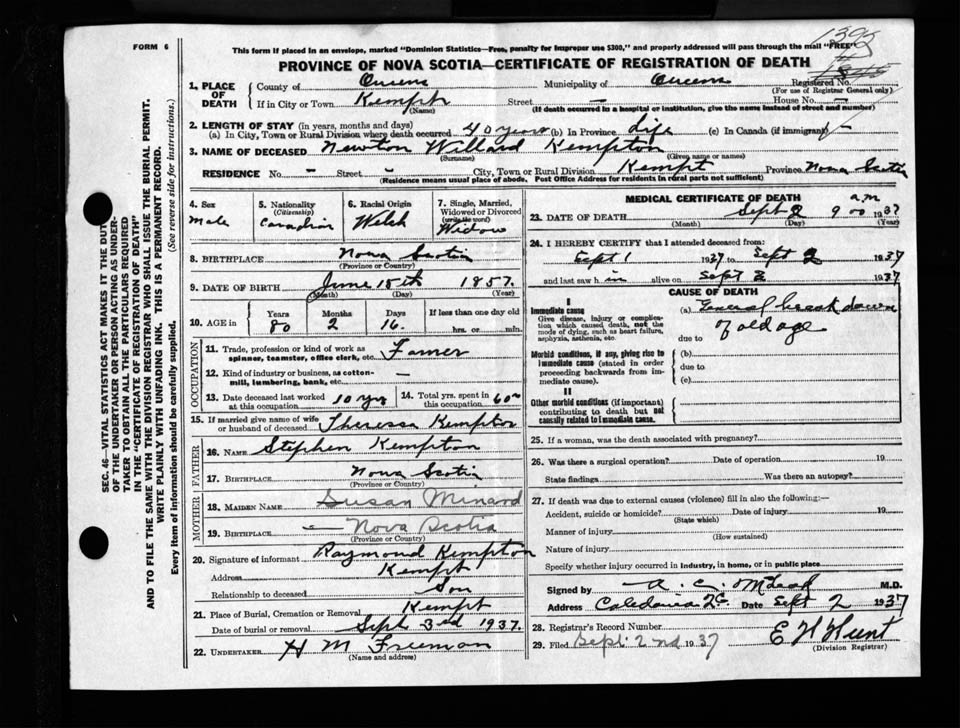 FORM 6
This form if placed in an envelope, marked "Dominion Statistics—Free, penalty for improper use $300," and properly addressed will pass through the mail "FREE"
PROVINCE OF NOVA SCOTIA—CERTIFICATE OF REGISTRATION OF DEATH
1. PLACE OF DEATH
County of Queens Municipality of Queens Registered No.
(For use of Registrar General only)
If in City or Town Kempt Street — House No. —
(Name) (If death occurred in a hospital or institution, give the name instead of street and number)
2. LENGTH OF STAY (in years, months and days)
(a) In City, Town or Rural Division where death occurred 40 years (b) In Province Life (c) In Canada (if immigrant) —
3. NAME OF DECEASED Newton Willard Kempton
(Surname) (Given name or names)
RESIDENCE No. — Street — City, Town or Rural Division Kempt Province Nova Scotia
(Residence means usual place of abode. Post Office Address for residents in rural parts not sufficient)
4. Sex
Male
5. Nationality
(Citizenship)
Canadian
6. Racial Origin
Welsh
7. Single, Married, Widowed or Divorced
(write the word)
Widow
8. BIRTHPLACE Nova Scotia
(Province or Country)
9. DATE OF BIRTH June 15th 1857
(Month) (Day) (Year)
10. AGE in
Years Months Days If less than one day old
80 2 16. hrs. or min.
OCCUPATION
11. Trade, profession or kind of work as spinner, teamster, office clerk, etc. Farmer
12. Kind of industry or business, as cotton-mill, lumbering, bank, etc. —
13. Date deceased last worked at this occupation 10 yrs
14. Total yrs. spent in this occupation 60
15. If married give name of wife or husband of deceased Theressa Kempton
FATHER
16. NAME Stephen Kempton
17. BIRTHPLACE Nova Scotia
(Province or Country)
MOTHER
18. MAIDEN NAME Susan Minard
19. BIRTHPLACE — Nova Scotia
(Province or Country)
20. Signature of informant Raymond Kempton
Address Kempt
Relationship to deceased Son
21. Place of Burial, Cremation or Removal Kempt
Date of burial or removal Sept 3rd 1937.
22. UNDERTAKER H M Freeman
(Name and address)
MEDICAL CERTIFICATE OF DEATH
23. DATE OF DEATH Sept 2 9 00 a.m 1937
(Month) (Day) (Year)
24. I HEREBY CERTIFY that I attended deceased from:
Sept 1 1937 to Sept 2 1937
and last saw h im alive on Sept 2 1937
CAUSE OF DEATH
I
Immediate cause
Give disease, injury or complication which caused death, not the mode of dying, such as heart failure, asphyxia, asthenia, etc.
(a) General break down
of old age
due to
Morbid conditions, if any, giving rise to immediate cause (stated in order proceeding backwards from immediate cause).
(b)
due to
(c)
II
Other morbid conditions (if important) contributing to death but not causally related to immediate cause.
25. If a woman, was the death associated with pregnancy?
26. Was there a surgical operation? Date of operation 19
State findings Was there an autopsy?
27. If death was due to external causes (violence) fill in also the following:—
Accident, suicide or homicide? Date of injury 19
(State which)
Manner of injury
(How sustained)
Nature of injury
Specify whether injury occurred in industry, in home, or in public place
Signed by A. C. McLeod M.D.
Address Caledonia Date Sept 2 1937
28. Registrar's Record Number
29. Filed Sept: 2nd 1937 E H Hunt
(Division Registrar)
SEC. 46—VITAL STATISTICS ACT MAKES IT THE DUTY
OF THE UNDERTAKER OR PERSON ACTING AS UNDER-
TAKER TO OBTAIN ALL THE PARTICULARS REQUIRED
IN THE "CERTIFICATE OF REGISTRATION OF DEATH"
AND TO FILE THE SAME WITH THE DIVISION REGISTRAR WHO SHALL ISSUE THE BURIAL PERMIT.
WRITE PLAINLY WITH UNFADING INK. THIS IS A PERMANENT RECORD.
Every item of information should be carefully supplied. (See reverse side for instructions.)